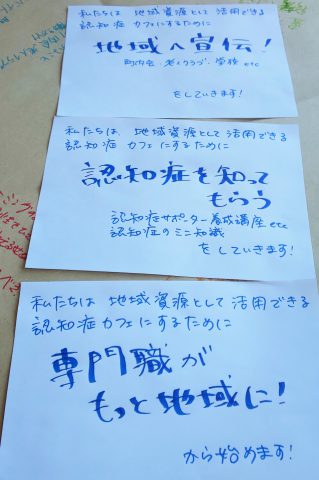 私たちは 地域資源として 活用できる
認知症カフェにするために
地域へ宣伝!
町内会 老人クラブ 学校 etc
をしていきます!
私たちは、地域資源として活用できる
認知症 カフェにするために
認知症を知って
もらう
認知症サポーター養成講座 etc
認知症のミニ知識
をしていきます!
私たちは 地域資源として 活用できる
認知症カフェにするために
専門職が
もっと地域に!
から始めます!